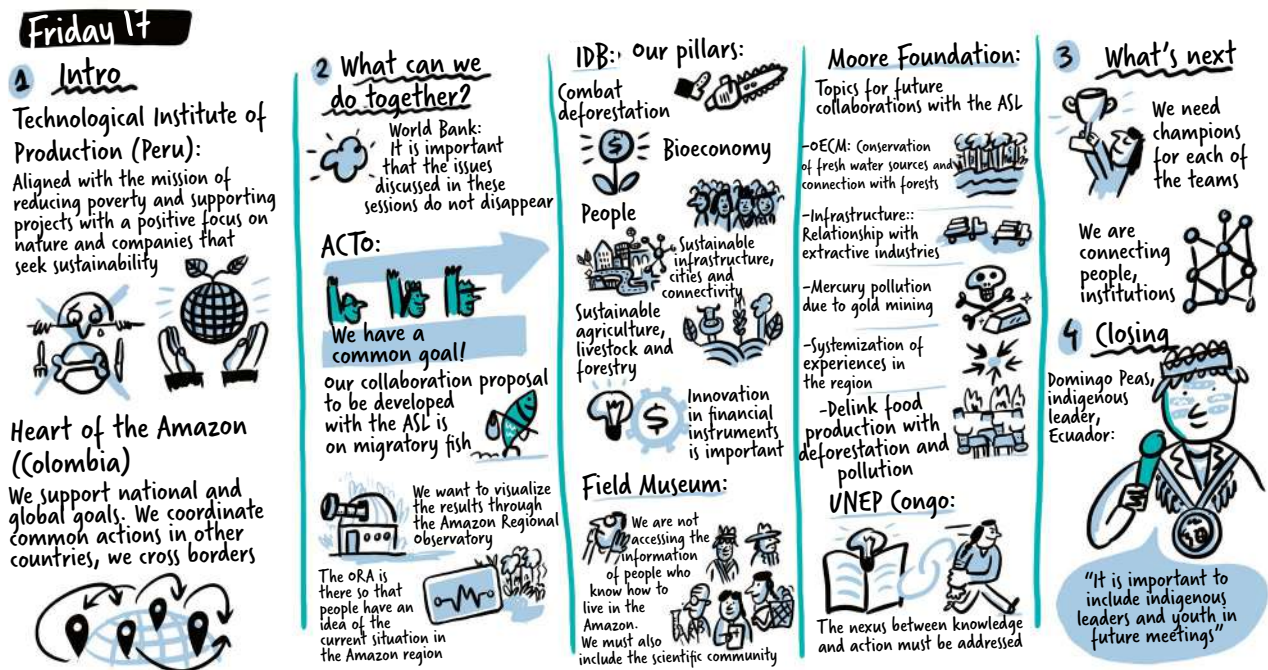 Friday 17
1 Intro
Technological Institute of
Production (Peru):
Aligned with the mission of
reducing poverty and supporting
projects with a positive focus on
nature and companies that
seek sustainability
Heart of the Amazon
(Colombia)
We support national and
global goals. We coordinate
common actions in other
countries, we cross borders
2 What can we
do together?
World Bank:
It is important
that the issues
discussed in these
sessions do not disappear
ACTO:
We have a
common goal!
Our collaboration proposal
to be developed
with the ASL is
on migratory fish
We want to visualize
the results through
the Amazon Regional
Observatory
The ORA is
there so that
people have an
idea of the
current situation in
the Amazon region
IDB: Our pillars:
Combat
deforestation
$
Bioeconomy
People
Sustainable
infrastructure,
cities and
connectivity
Sustainable
agriculture,
livestock and
forestry
$
Innovation
in financial
instruments
is important
Field Museum:
We are not
accessing the
information
of people who
know how to
live in the
Amazon.
We must also
include the scientific community
Moore Foundation:
Topics for future
collaborations with the ASL
-OECM: Conservation
of fresh water sources and
connection with forests
-Infrastructure::
Relationship with
extractive industries
-Mercury pollution
due to gold mining
-Systemization of
experiences in
the region
-Delink food
production with
deforestation and
pollution
UNEP Congo:
The nexus between knowledge
and action must be addressed
3 What's next
We need
champions
for each of
the teams
We are
connecting
people,
institutions
4 Closing
Domingo Peas,
indigenous
leader,
Ecuador:
"It is important to
include indigenous
leaders and youth in
future meetings"